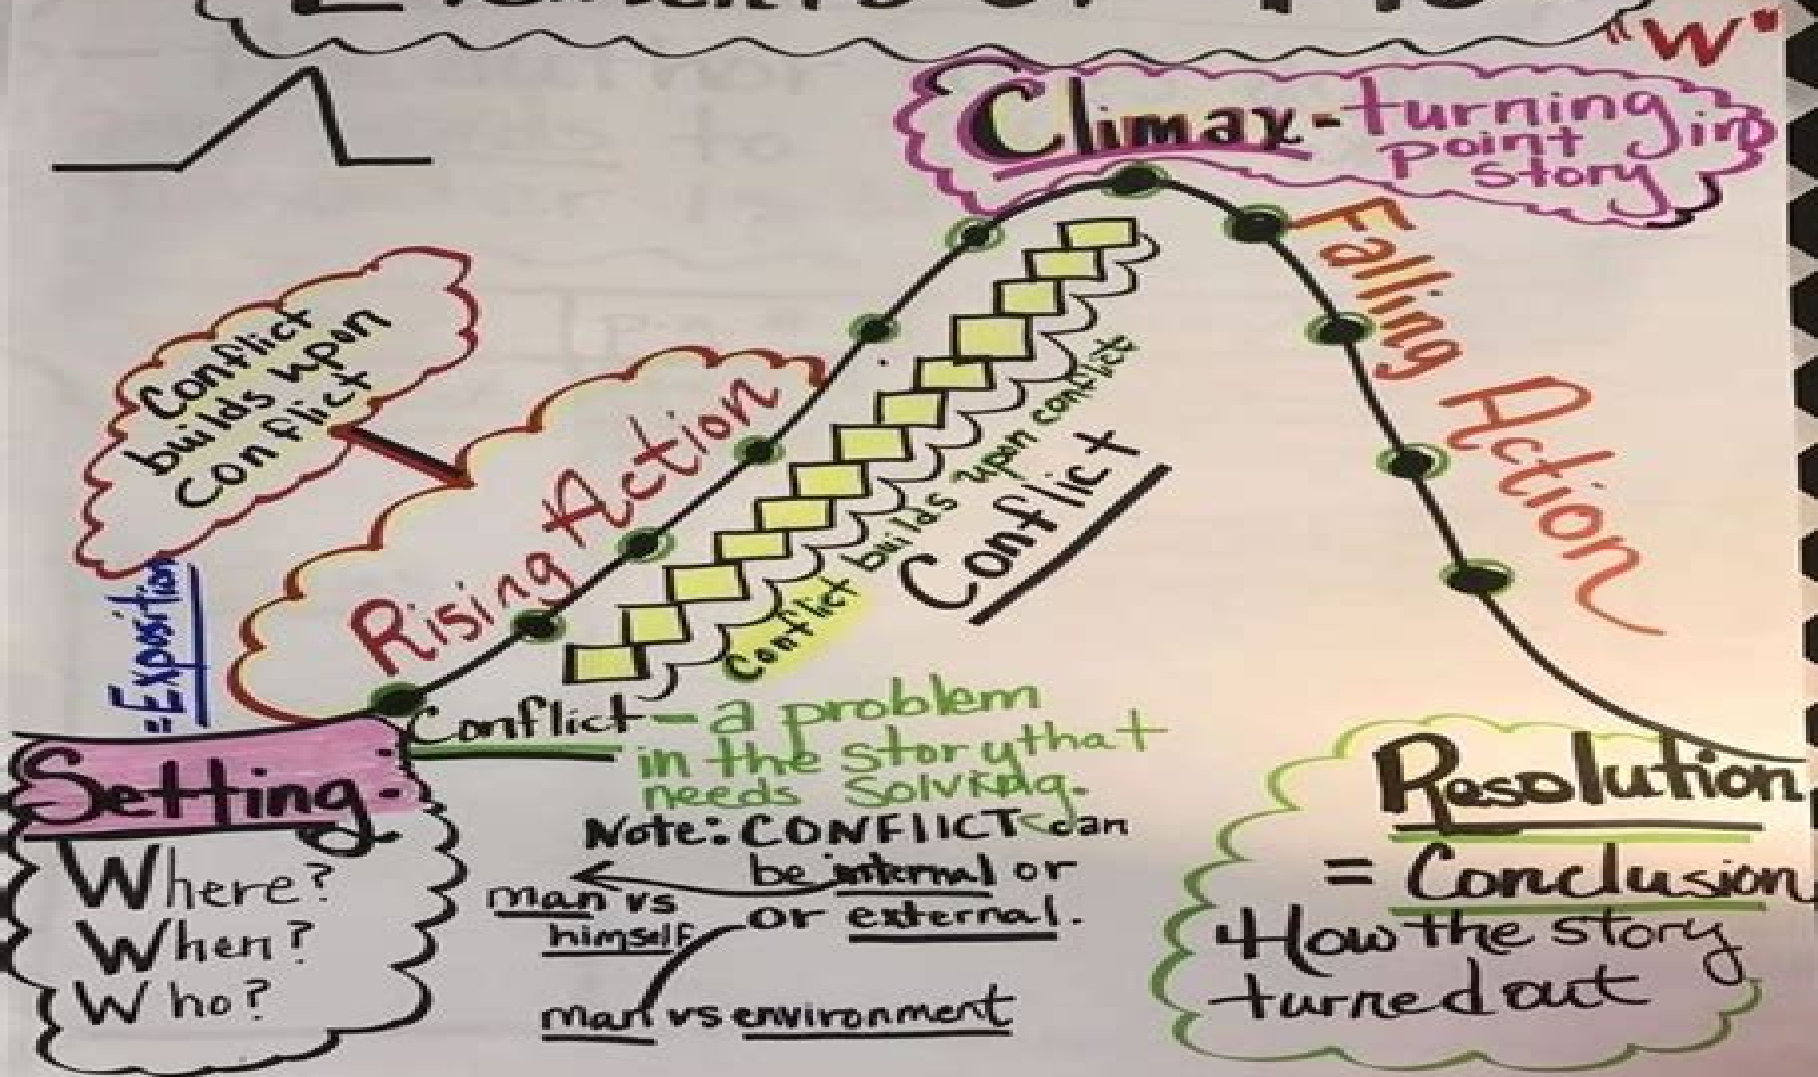 Elements of
"W"
Climax - turning
point in
story
Falling Action
Conflict
builds upon
conflict
Rising Action
Conflict builds upon conflict
Conflict
=Exposition
Setting:
Where?
When?
Who?
Conflict - a problem
in the story that
needs solving.
Note: CONFLICT can
be internal or
or external.
man vs
himself
man vs environment
Resolution
= Conclusion
How the story
turned out